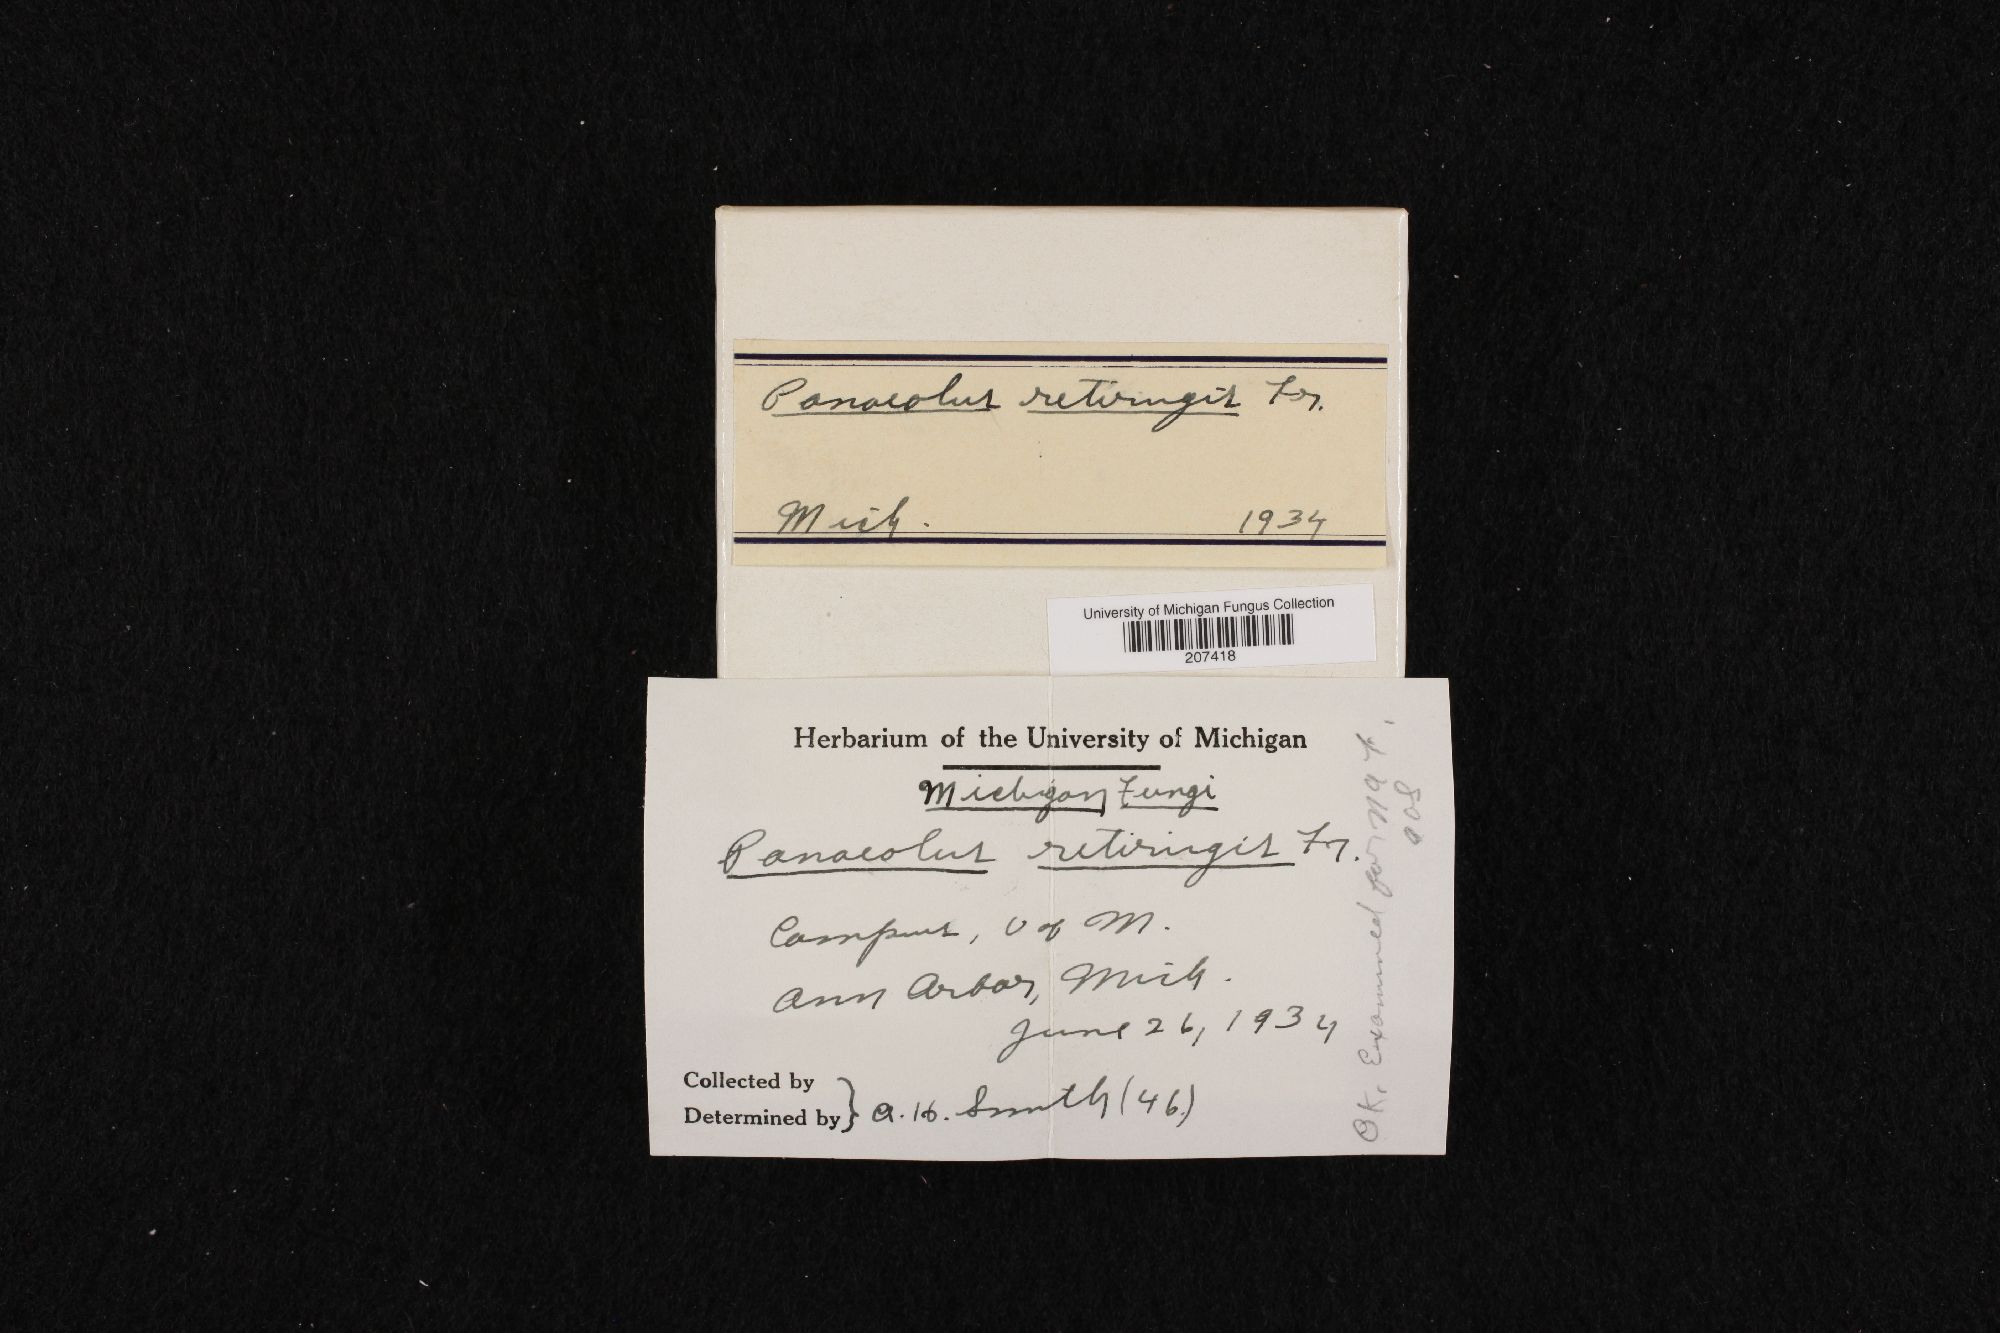 Panaeolus retirugis Fr.
Mich. 1934
University of Michigan Fungus Collection
207418
Herbarium of the University of Michigan
Michigan Fungi
Panaeolus retirugis Fr.
Campus, U of M.
Ann Arbor, Mich.
June 26, 1934
Collected by
Determined by } A. H. Smith (46)
OK. Examined for NAF.